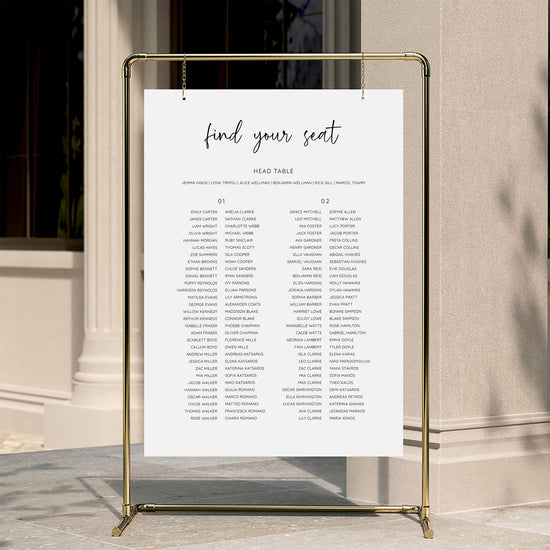 find your seat
HEAD TABLE
JEMMA HINDS | LYDIA TRIPOLI | ALICE WELLMAN | BENJAMIN WELLMAN | RICK GILL | MARCEL TOWRY
01 02
EMILY CARTER AMELIA CLARKE GRACE MITCHELL SOPHIE ALLEN
JAMES CARTER NATHAN CLARKE LEO MITCHELL MATTHEW ALLEN
LIAM WRIGHT CHARLOTTE WEBB MIA FOSTER LUCY PORTER
OLIVIA WRIGHT MICHAEL WEBB JACK FOSTER JACOB PORTER
HANNAH MORGAN RUBY SINCLAIR AVA GARDNER FREYA COLLINS
LUCAS HAYES THOMAS SCOTT HENRY GARDNER OSCAR COLLINS
ZOE SUMMERS ISLA COOPER ELLA VAUGHAN ABIGAIL HUGHES
ETHAN BROOKS NOAH COOPER SAMUEL VAUGHAN SEBASTIAN HUGHES
SOPHIE BENNETT CHLOE SANDERS ZARA REID EVIE DOUGLAS
DANIEL BENNETT RYAN SANDERS BENJAMIN REID LIAM DOUGLAS
POPPY REYNOLDS IVY PARSONS ELIZA HARDING MOLLY HAWKINS
HARRISON REYNOLDS ELIJAH PARSONS JOSHUA HARDING DYLAN HAWKINS
MATILDA EVANS LILY ARMSTRONG SOPHIA BARBER JESSICA PRATT
GEORGE EVANS ALEXANDER COATS WILLIAM BARBER EVAN PRATT
WILLOW KENNEDY MADDISON BLAKE HARRIET LOWE BONNIE SIMPSON
ARTHUR KENNEDY CONNOR BLAKE ELLIOT LOWE BLAKE SIMPSON
ISABELLE FRASER PHOEBE CHAPMAN ANNABELLE WATTS ROSE HAMILTON
ADAM FRASER OLIVER CHAPMAN CHARLES WATTS GABRIEL HAMILTON
SCARLETT BOYD FLORENCE MILLS GEORGIA LAMBERT EMMA DOYLE
CALLUM BOYD OWEN MILLS FINN LAMBERT TYLER DOYLE
ANDREW MILLER ANDREAS KATSAROS ISLA CLARKE ELENA KARAS
JESSICA MILLER ELENA KATSAROS LEO CLARKE NIKO PAPADOPOULOS
ZAC MILLER KATERINA KATSAROS ZAC CLARKE YANNI STAVROS
MIA MILLER SOFIA KATSAROS MIA CLARKE SOFIA MANOS
JACOB WALKER NIKO KATSAROS MAX CLARKE THEO KALOS
HANNAH WALKER GIULIA ROMANO OSCAR SHIRVINGTON DEMI KATSAROS
OSCAR WALKER MARCO ROMANO ELLA SHIRVINGTON ANDREAS PETROS
CHLOE WALKER MATTEO ROMANO LUCAS SHIRVINGTON KATERINA GIANNIS
THOMAS WALKER FRANCESCA ROMANO AVA CLARKE LEONIDAS MARKOS
ROSE WALKER CHIARA ROMANO LILY CLARKE MARIA XENOS